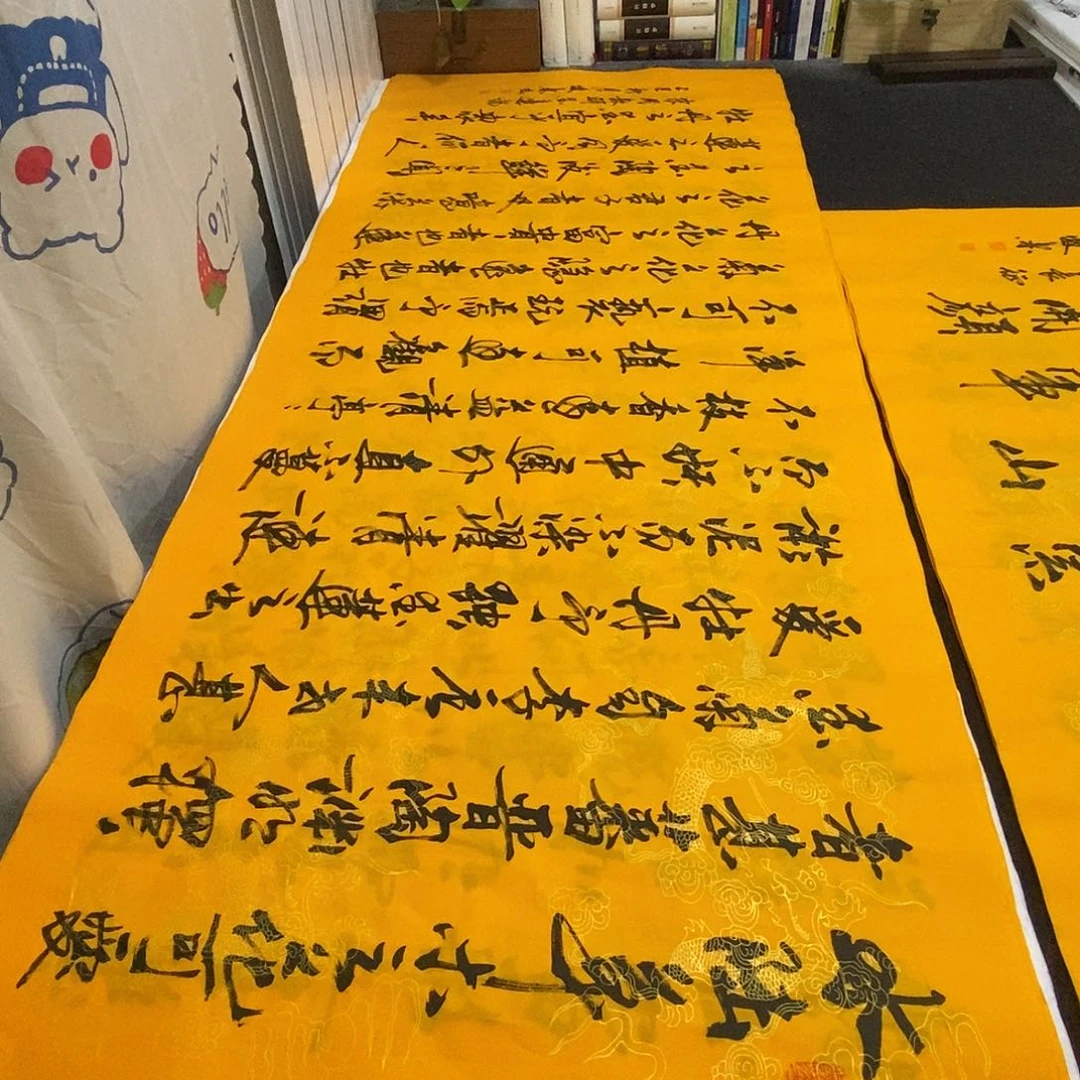 水陸草木之花可愛
者甚蕃晉陶淵明獨
愛菊自李唐來世人甚
愛牡丹予獨愛蓮之出
淤泥而不染濯清漣
而不妖中通外直不蔓
不枝香遠益清亭亭
淨植可遠觀而
不可褻玩焉予謂
菊花之隱逸者也牡
丹花之富貴者也蓮
花之君子者也噫菊
之愛陶後鮮有聞
蓮之愛同予者何人
牡丹之愛宜乎眾矣
山
開顏